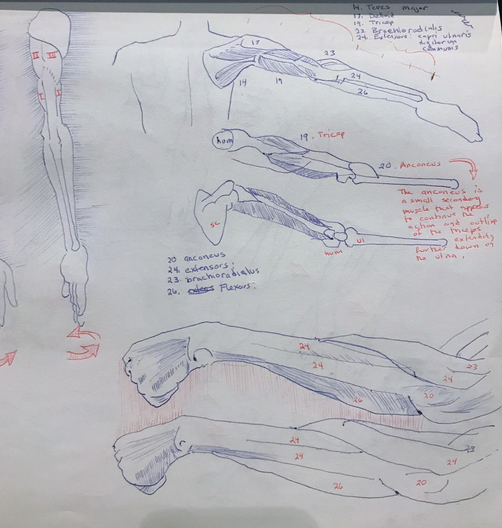 14. Teres major
17. Deltoid
19. Tricep
23 Brachioradialis
24. Extensors: carpi ulnaris
digitorum
communis
17
23
24
26
14
19
hum
19. Tricep
20. Anconeus
The anconeus is
a small secondary
muscle that appears
to continue the
action and outline
of the triceps
extending
further down on
the ulna.
sc
hum
UL
20 anconeus
24. extensors
23. brachioradialus
26. Flexors.
24
24
23
24
20
26
24
24
23
24
20
26